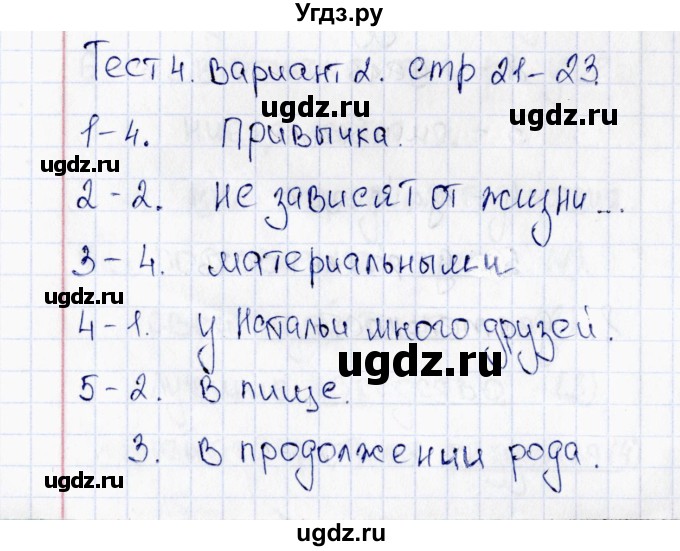 Угдз.ру
Тест 4. Вариант 2. стр 21-23
ugdz.ru ugdz.ru
1-4. Привычка.
ugdz.ru
2-2. не зависят от жизни...
3-4. материальными
ugdz.ru
4-1. у Натальи много друзей.
ugdz.ru
5-2. в пище.
ugdz.ru
3. в продолжении рода.
ugdz.ru
ugdz.ru